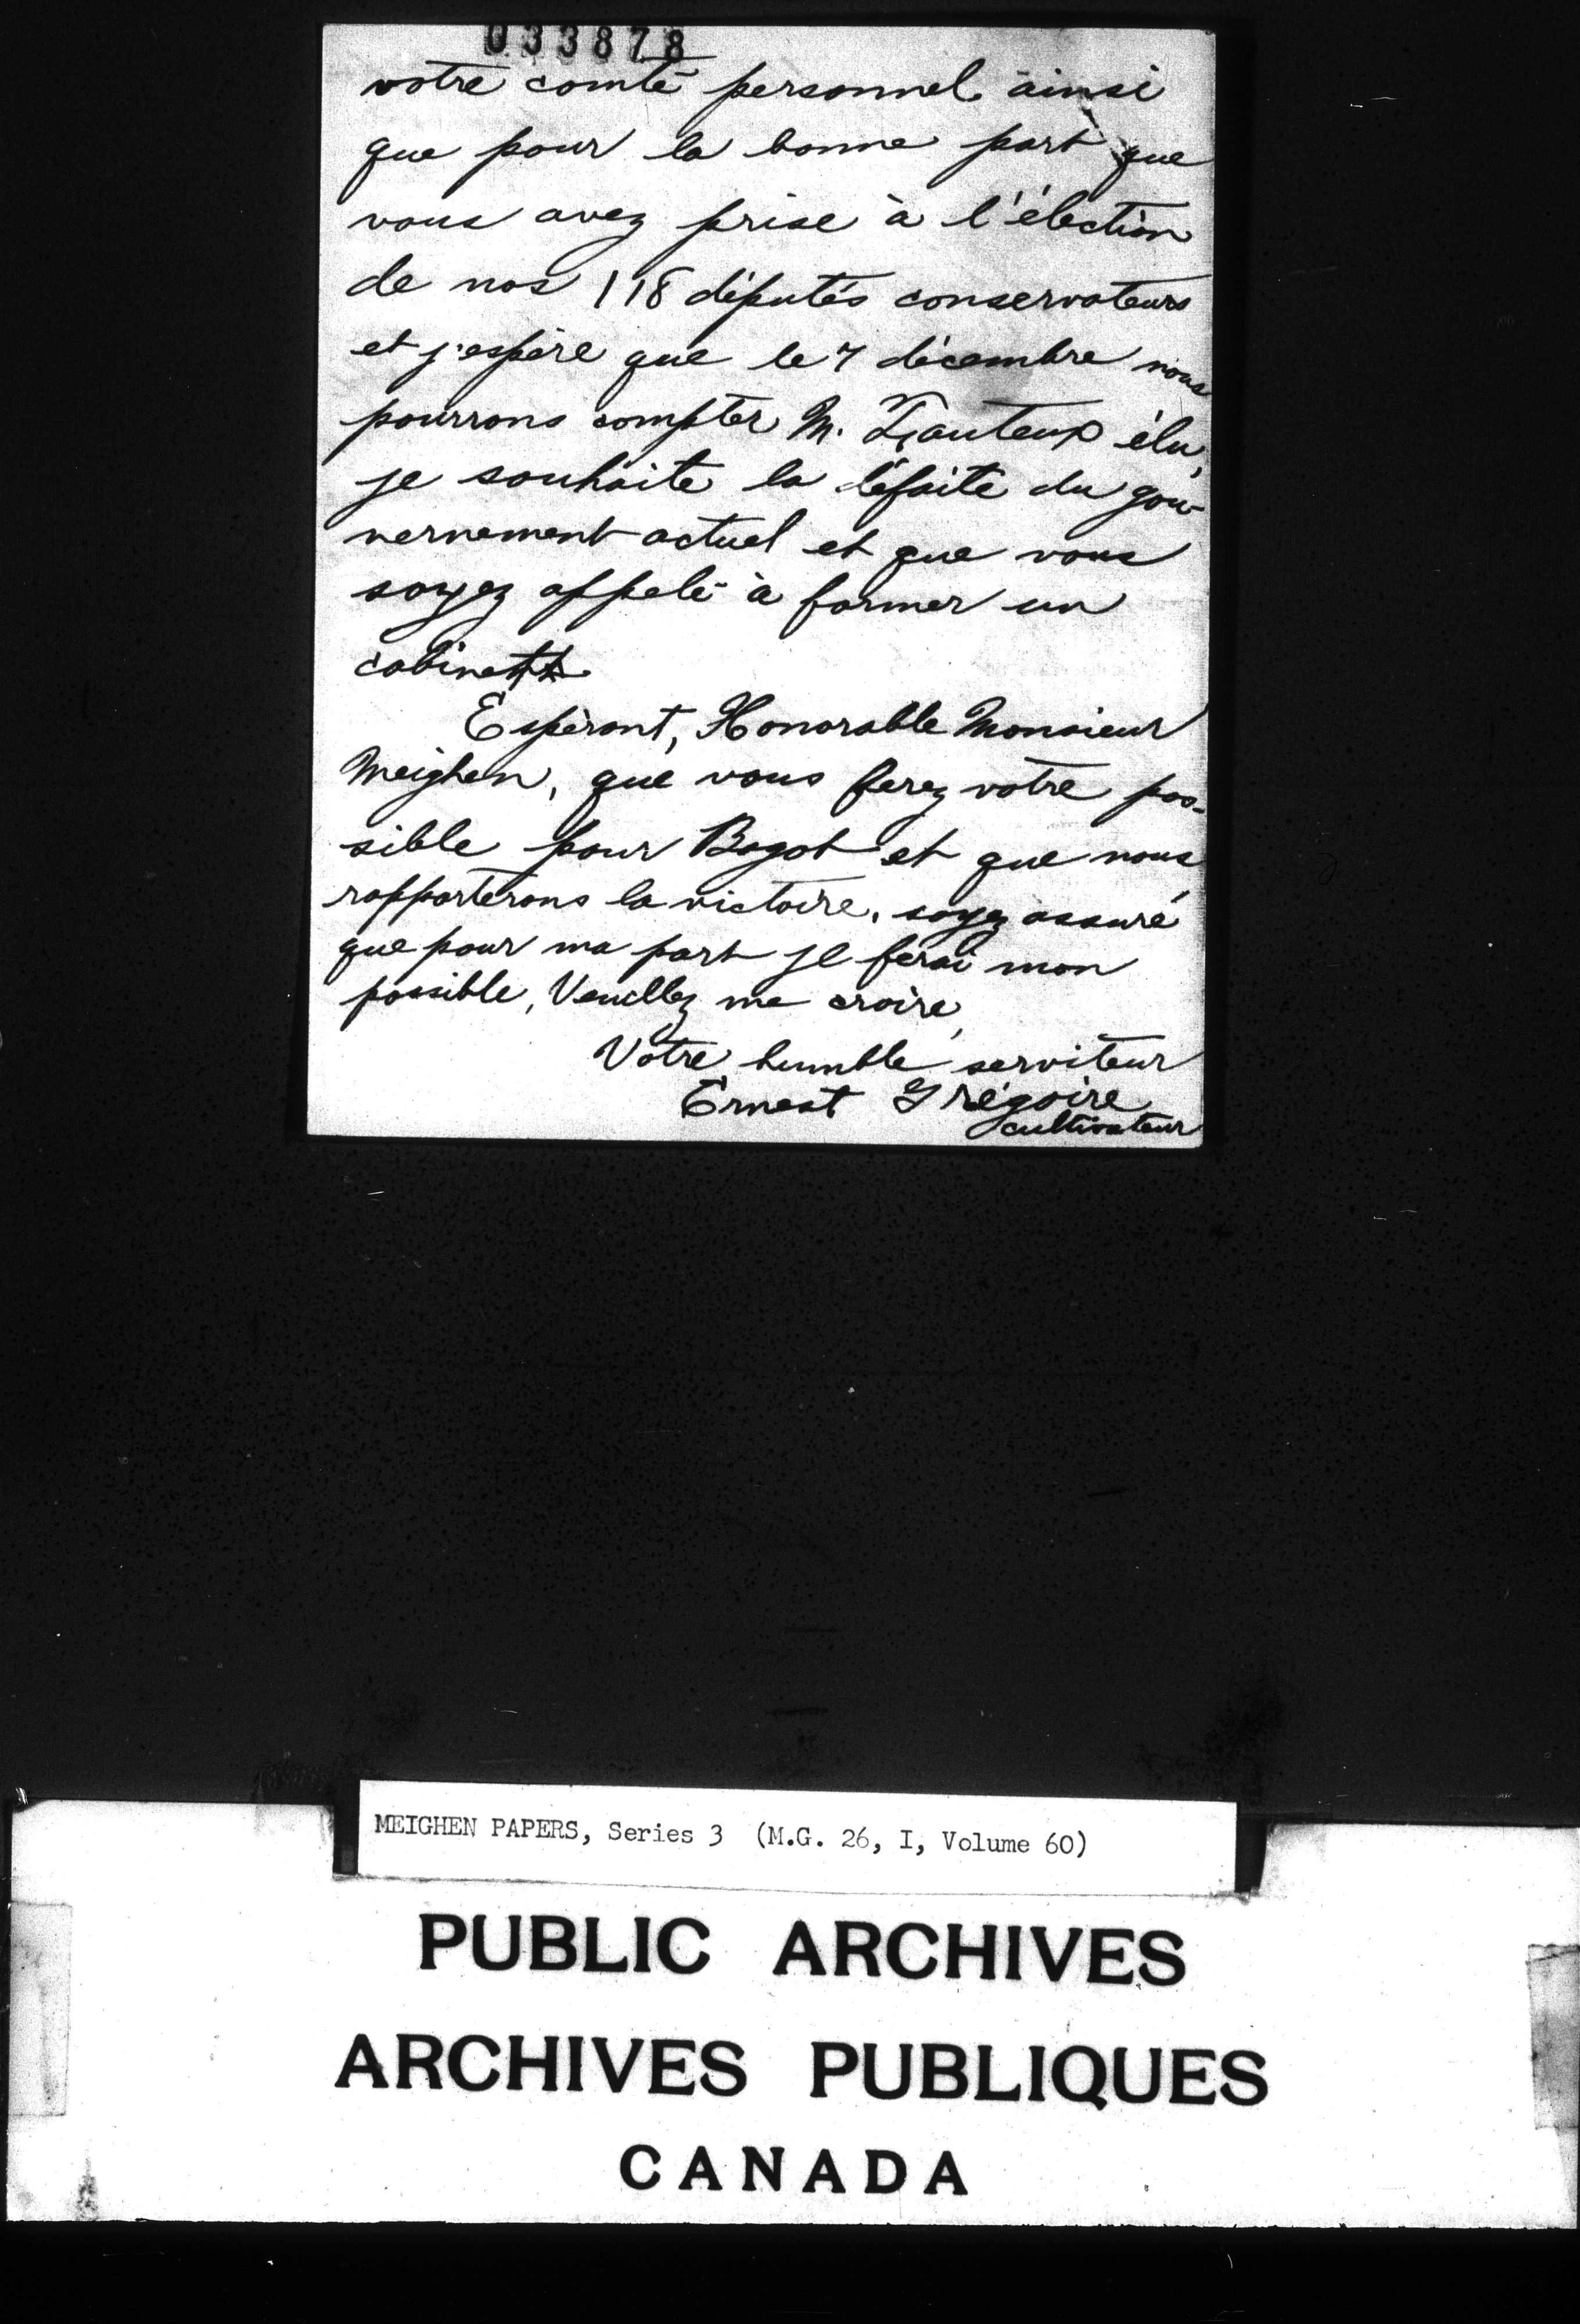 033878
votre comté personnel ainsi
que pour la bonne part que
vous avez prise à l'élection
de nos 118 députés conservateurs
et j'espère que le 7 décembre nous
pourrons compter M. Fauteux élu,
je souhaite la défaite du gou-
vernement actuel et que vous
soyez appelé à former un
cabinet.
Espérant, Honorable Monsieur
Meighen, que vous ferez votre pos-
sible pour Bagot et que nous
rapporterons la victoire, soyez assuré
que pour ma part je ferai mon
possible, Veuillez me croire,
Votre humble serviteur
Ernest Grégoire
cultivateur
MEIGHEN PAPERS, Series 3 (M.G. 26, I, Volume 60)
PUBLIC ARCHIVES
ARCHIVES PUBLIQUES
CANADA